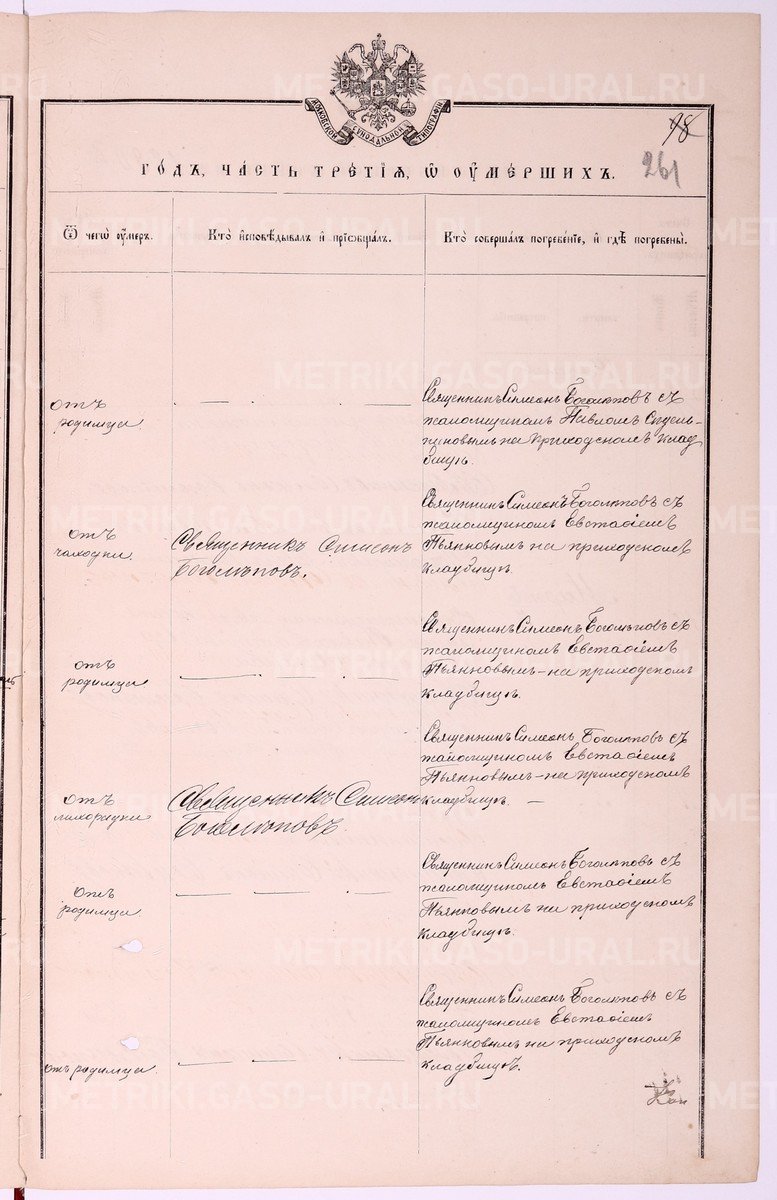 МОСКОВСКОЙ СѴНОДАЛЬНОЙ ТИПОГРАФІИ
98
261
ГОДЪ, ЧАСТЬ ТРЕТІЯ, Ѡ ОУМЕРШИХЪ.
Ѿ чегѡ оумеръ.
Кто исповѣдывалъ и пріобщалъ.
Кто совершалъ погребеніе, и гдѣ погребены.
отъ
родимца
Священникъ Симеонъ Боголѣповъ съ
псаломщикомъ Павломъ
на приходскомъ клад
бищѣ.
отъ
чахотки
Священникъ Симеонъ
Боголѣповъ.
Священникъ Симеонъ Боголѣповъ съ
псаломщикомъ Евстаѳіемъ
Пьянковымъ на приходскомъ
кладбищѣ.
отъ
родимца
Священникъ Симеонъ Боголѣповъ съ
псаломщикомъ Евстаѳіемъ
Пьянковымъ на приходскомъ
кладбищѣ.
отъ
лихорадки
Священникъ Симеонъ
Боголѣповъ.
Священникъ Симеонъ Боголѣповъ съ
псаломщикомъ Евстаѳіемъ
Пьянковымъ на приходскомъ
кладбищѣ. —
отъ
родимца
Священникъ Симеонъ Боголѣповъ съ
псаломщикомъ Евстаѳіемъ
Пьянковымъ на приходскомъ
кладбищѣ.
отъ родимца
Священникъ Симеонъ Боголѣповъ съ
псаломщикомъ Евстаѳіемъ
Пьянковымъ на приходскомъ
кладбищѣ.
METRIKI.GASO-URAL.RU